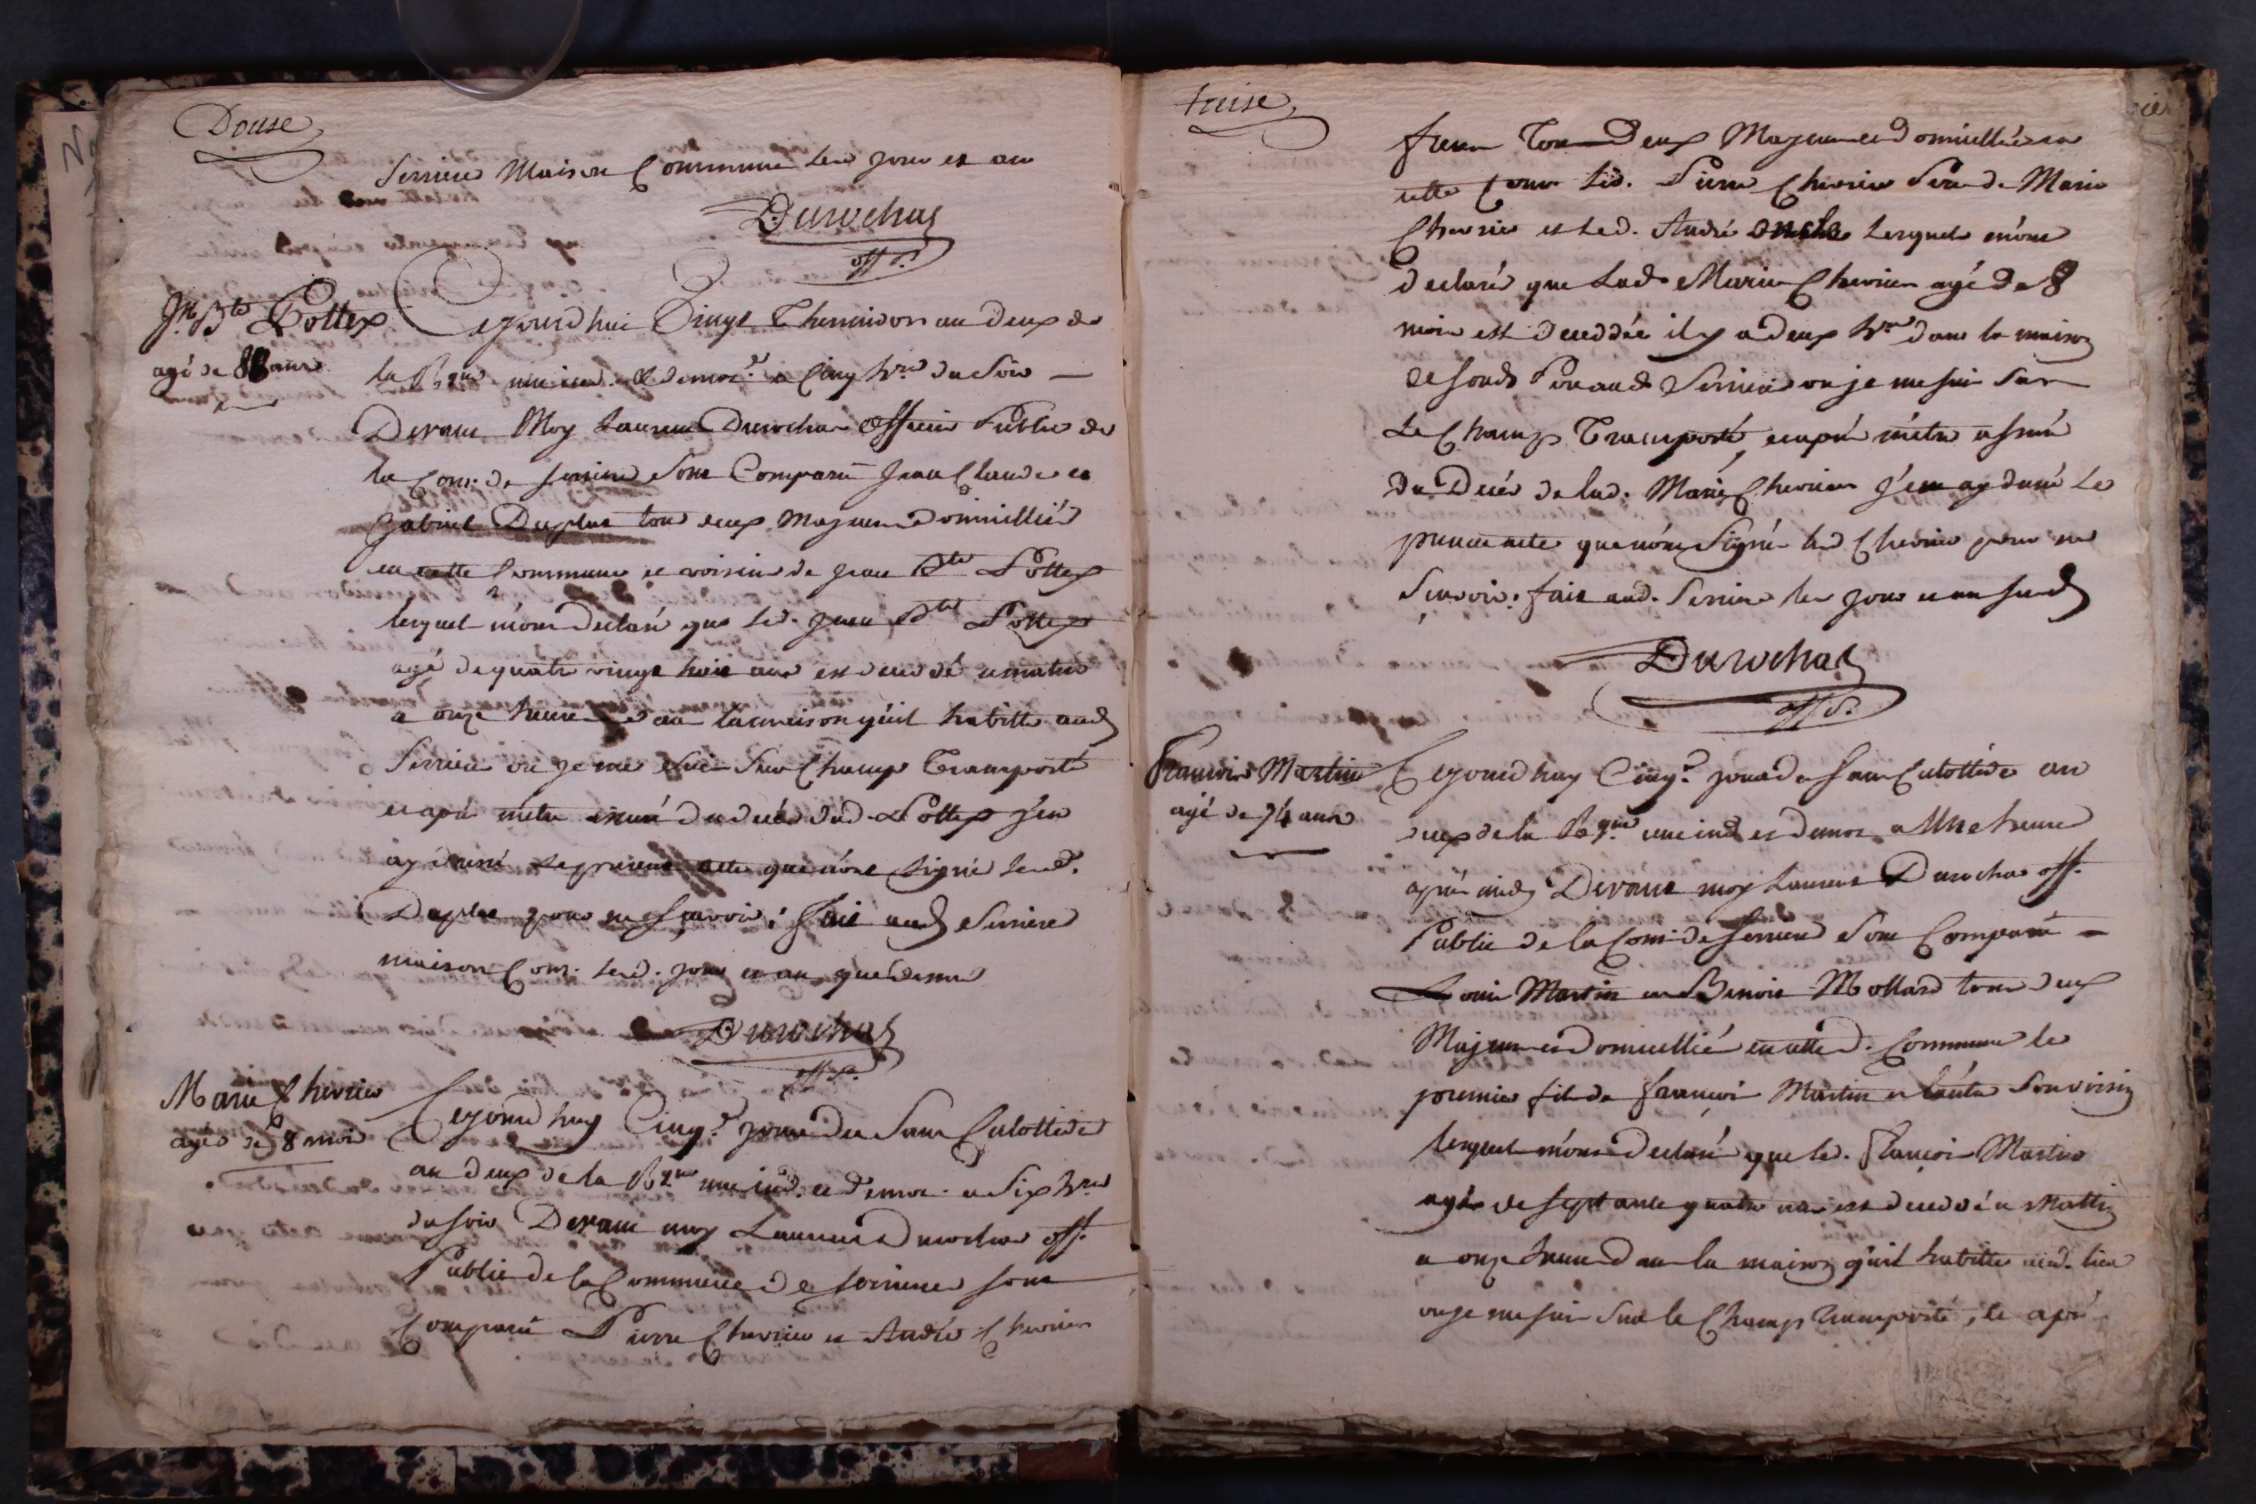 Douse
Serriere Maison Commune led jour et an
Durochat
off. P.
Jn. Bte Pottex
agé de 88 ans
Cejourdhui Vingt Thermidor an deux de
la Rque une ind. & democ. a Cinq hres du Soir —
Devant Moy Laurent Durochat Officier Public de
la Com. de Serriere Sont Comparû Jean Claude et
Gabriel Duplat tous deux Majeurs Domicilliés
en cette Commune et voisins de Jean Bte Pottex
lesquels m'ont Declaré que led. Jean Bte Pottex
agé de quatre vingt huit ans est deceddé ce matin
a onze heures dans la maison qu'il habitte aud
Serriere ou je me Suis Sur le Champ Transporté
et après m'etre assuré du decès dud. Pottex j'en
ay dressé le present acte que n'ont Signé lesd.
Duplat pour ne Sçavoir; fait aud Serriere
maison Com. led. jour et an que dessus
Durochat
off. P.
Marie Chevrier
agée de 8 mois
Cejourdhuy Cinq.e jour des Sans Culottides
an deux de la Rque une ind. et democ. a Six hres
du soir Devant moy Laurent Durochat off.
Public de la Commune de Serriere sont
Comparû Pierre Chevrier et André Chevrier
traise
freres Tous Deux Majeurs et Domicilliés en
cette Com. led. Pierre Chevrier Pere de Marie
Chevrier et led. André oncle Lesquels m'ont
declaré que Lade Marie Chevrier agé de 8
mois est deceddée il y a deux hres dans la maison
de sond. Pere aud Serriere ou je me suis Sur
Le Champ Transporté, et après m'etre assuré
du Decès de lad. Marie Chevrier j'en ay dressé Le
present acte que n'ont Signé led Chevrier pour ne
Sçavoir: fait aud. Serriere les jour et an susd
Durochat
off. P.
François Martin
agé de 74 ans
Cejourdhuy Cinq.e jour des Sans Culottides an
deux de la Rque une ind et democ. a Une heure
après midy Devant moy Laurent Durochat off.
Public de la Com. de Serriere Sont Comparû —
Louis Martin et Benoit Mollard tous deux
Majeurs et Domicillié en cette d. Commune le
premier fils de François Martin et l'autre Son voisin
lesquels m'ont Declaré que led. François Martin
agé de septante quatre ans est deceddé ce Mattin
a onze heures dans la maison qu'il habitte aud. lieu
ou je me suis Sur le Champ transporté, et après